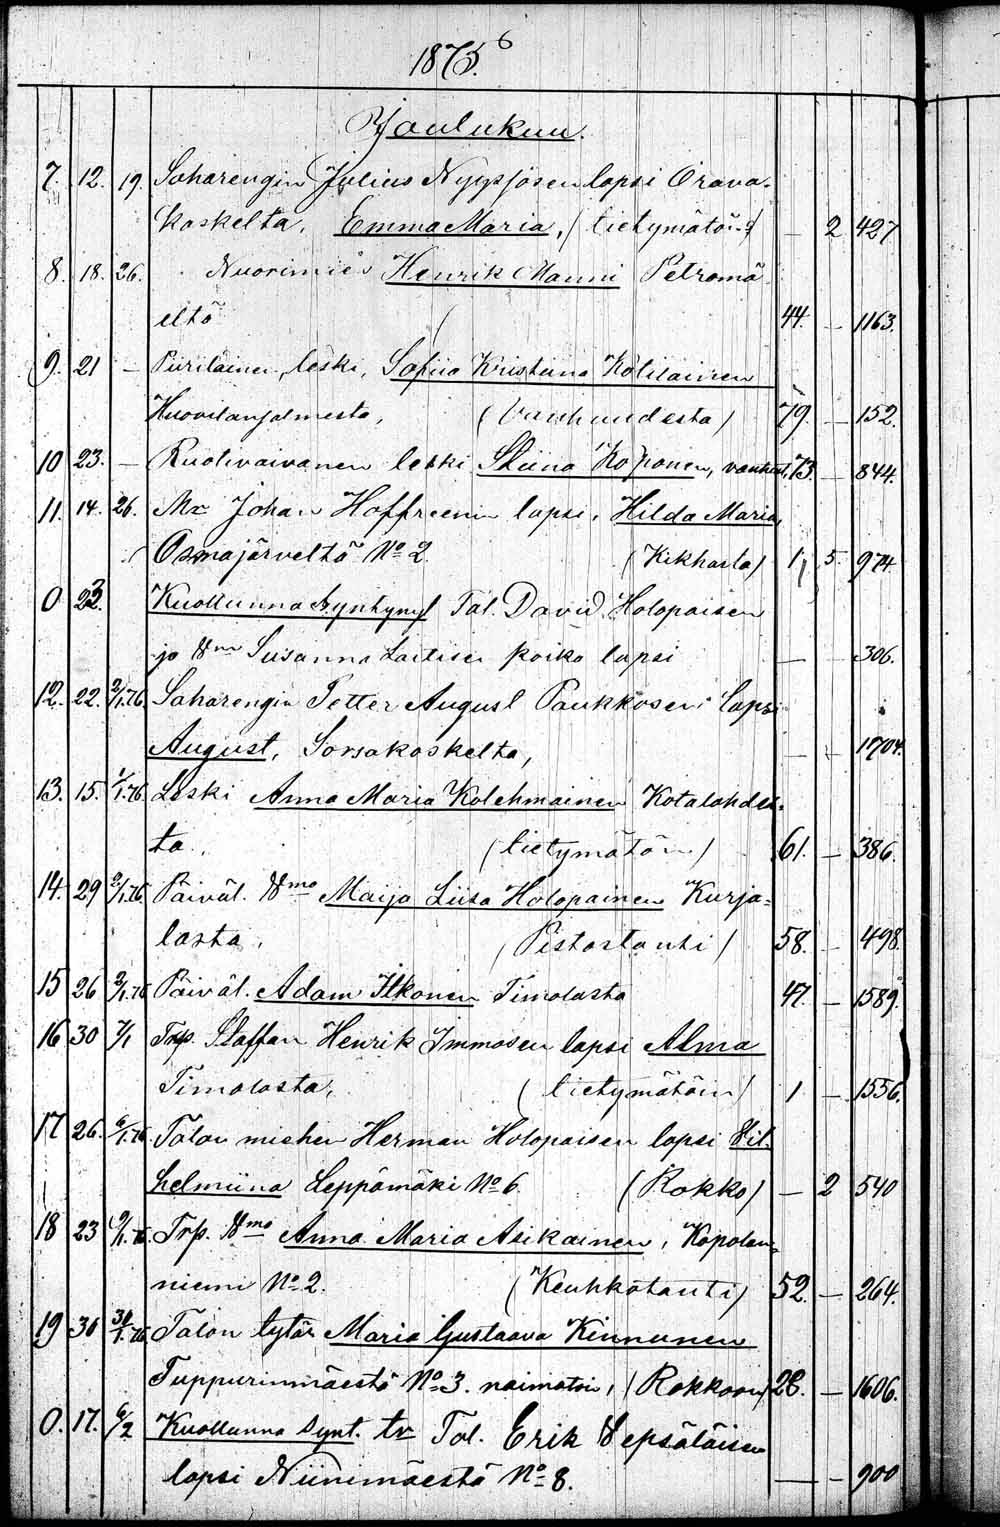 1875. 6
Joulukuu.
7. 12. 19. Saharengin Julius Nyyssösen lapsi Orava-
koskelta, Emma Maria, (tietymätöin) — 2 427
8. 18. 26. Nuorimies Henrik Manni Petromä
eltä 44. — 1163.
9. 21 — Piirilainen, leski, Sofiia Kristiina Kolilainen
Huovilanjalmesta, (Vanhuudesta) 79. — 152.
10 23. — Ruotivaivanen leski Stiina Koponen, vanhuut. 73. — 844.
11. 14. 26. Mr Johan Hoffreenin lapsi, Hilda Maria,
Osmajärveltä No 2. (Kikhasta) 1, 5. 974.
0 23. Kuollunna syntynyt Tal. David Holopaisen
ja Vmn Susanna Laitisen poika lapsi — — 306.
12. 22. 2/1.76. Saharengin Petter August Paukkosen lapsi
August, Sorsakoskelta, — — 1704.
13. 15. 1/1.76. Leski Anna Maria Kolehmainen Kotalahdes-
ta. (tietymätöin) 61. — 386.
14. 29 2/1.76. Päiväl. Vmo Maija Liisa Holopainen Kurja-
lasta, (Pistostauti) 58. — 498.
15 26 2/1.76 Päiväl. Adam Itkonen Timolasta 47. — 1589.
16 30 7/1 Trp. Staffan Henrik Immosen lapsi Alma
Timolasta, (tietymätöin) 1 — 1556.
17 26. 6/1.76. Talon miehen Herman Holopaisen lapsi Vil-
helmiina Leppämäki No 6. (Rokko) — 2 540
18 23 9/1.76. Trp. Vmo Anna Maria Asikainen, Kopolan-
niemi No 2. (Keuhkotauti) 52. — 264.
19 30 30/1.76. Talon tytär Maria Gustaava Kinnunen
Tuppurinmäestä No 3. naimatoin, (Rokkoon) 28. — 1606.
0. 17. 6/2 Kuollunna synt. tr Tal. Erik Vepsäläisen
lapsi Niinimäestä No 8. — — 900